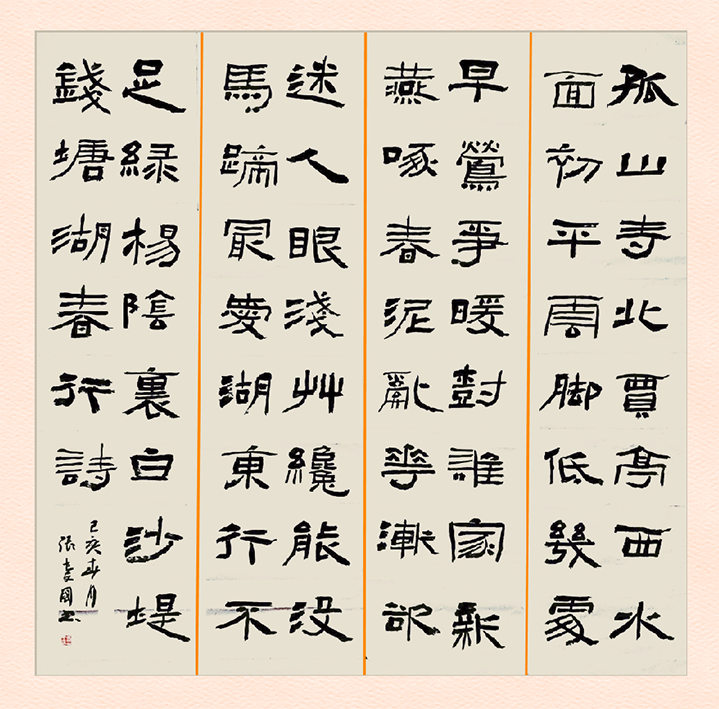 孤山寺北賈亭西水
面初平雲脚低幾處
早鶯爭暖樹誰家新
燕啄春泥亂華漸欲
迷人眼淺艸纔能沒
馬蹄冣愛湖東行不
足綠楊陰裏白沙堤
錢塘湖春行詩
己亥春月
張國書